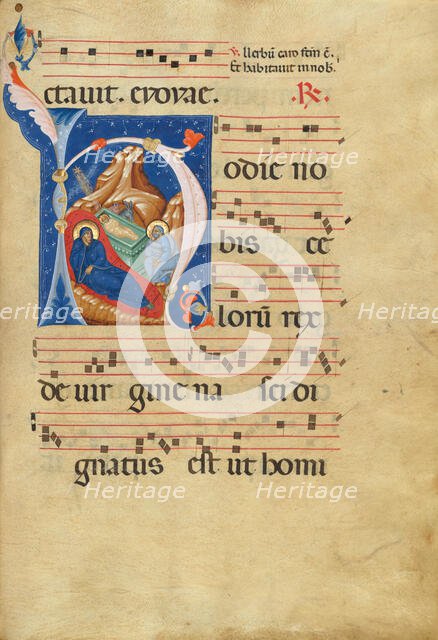 V. Uerbũ caro factũ ẽ.
Et habitavit in nob.
ctavit. evovae. R.
odie no
bis ce
lorũ rex
de vir gine na sci di
gnatus est ut homi
Heritage Heritage
Heritage Heritage
Heritage Heritage